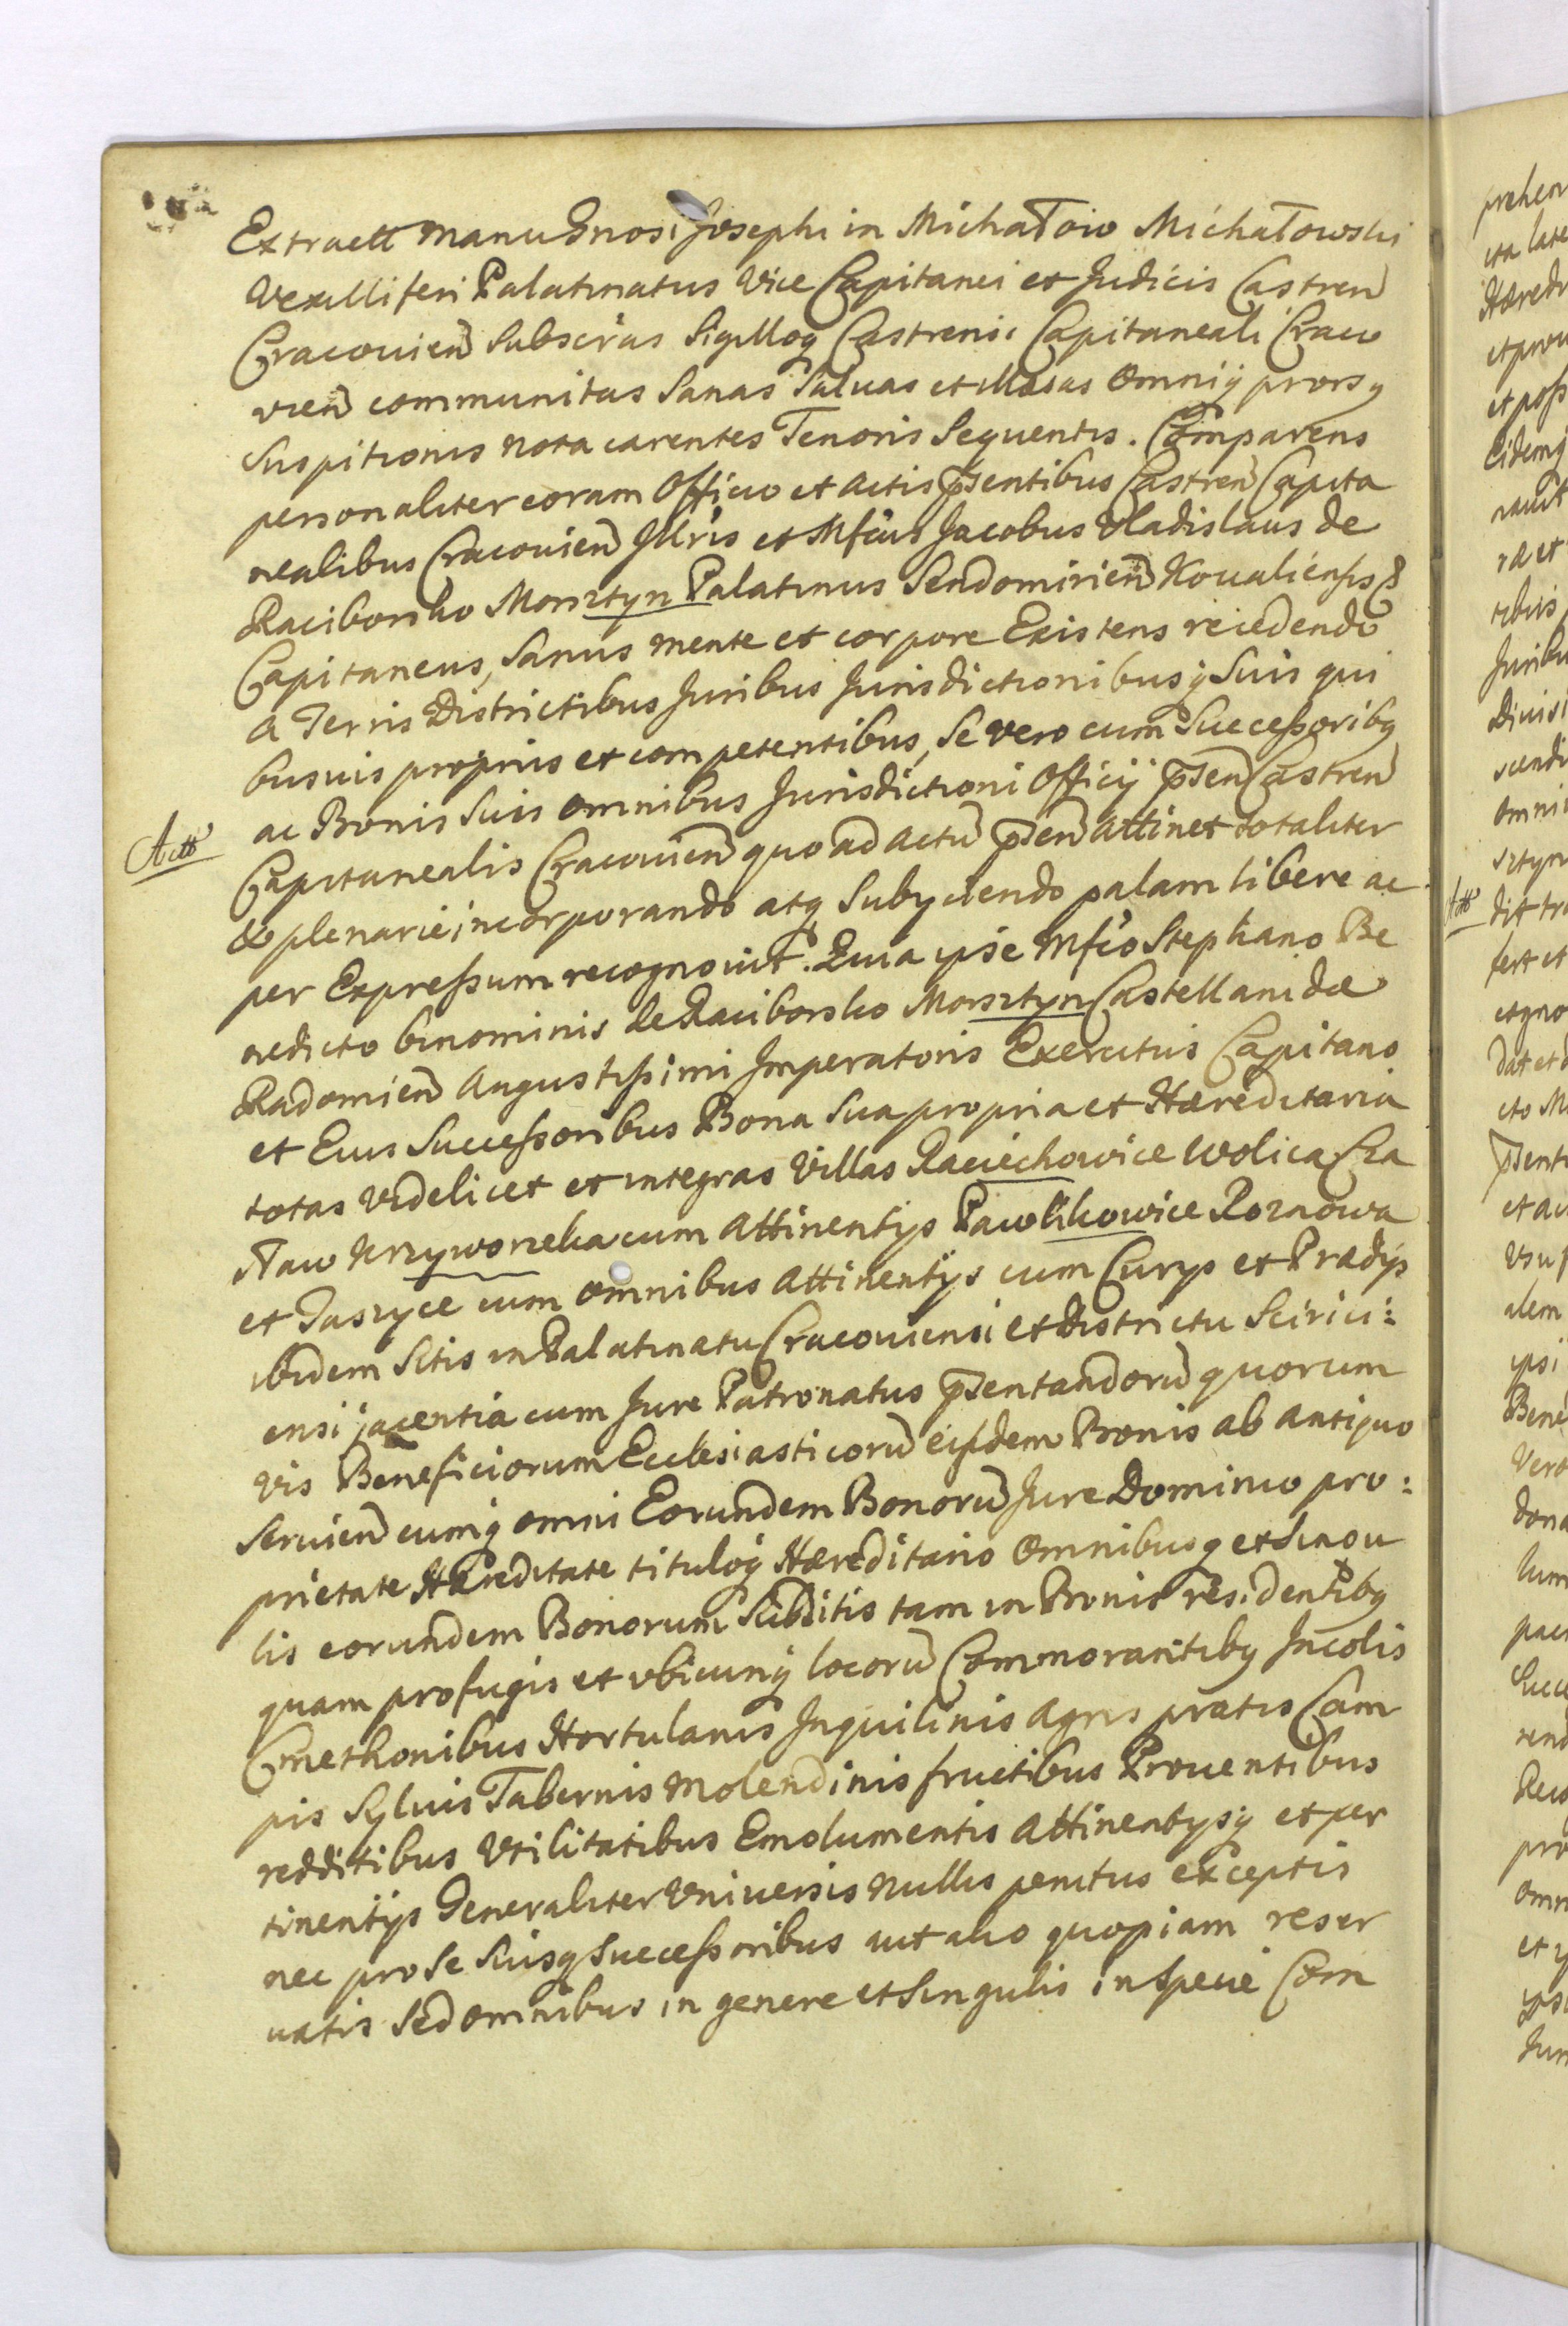 Extractt manu Gnosi Josephi in Michałow Michałowski
Vexilliferi Palatinatus Vice Capitanei et Judicis Castren
Cracovien Subscrãs Sigilloq Castrensi Capitaneali Craco
vien communitas Sanas Saluas et illæsas omniq prorsq
Suspitionis nota carentes Tenoris Sequentis. Comparens
personaliter coram Officio et Actis p̃sentibus Castren Capita
nealibus Cracouien Jllris et Mfcus Jacobus Vladislaus de
Raciborsko Morsztyn Palatinus Sendomirien Koualiensis
Capitaneus, Sanus mente et corpore Existens recedendo
a Terris Districtibus Juribus Jurisdictionibusq Suis qui
busuis proprijs et competentibus, Se vero cum Successoribq
ac Bonis Suis omnibus Jurisdictioni Officij p̃sen Castren
Actto
Capitanealis Cracouien quo ad Actũ p̃sen attinet totaliter
& plenarie incorporando atq Subyciendo palam libere ac
per Expressum recognouit. Quia ipse Mfco Stephano Be
nedicto binominis de Raciborsko Morsztyn Castellanidæ
Radomien Augustissimi Imperatoris Exercitus Capitano
et Eius Successoribus Bona Sua propria et Hæreditaria
totas Videlicet et integras Villas Raciechowice Wolica Cza
sław Krzyworzeka cum Attinentijs Pawlikowice Roznowa
et Taszyce cum omnibus Attinentijs cum Curijs et Prædijs
ibidem Sitis in Palatinatu Cracouiensi et Districtu Scirici:
ensi jacentia cum Jure Patronatus p̃sentandorũ quorum
vis Beneficiorum Ecclesiasticorũ eisdem Bonis ab antiquo
Seruien cumq omni Eorundem Bonorũ Jure Dominio pro:
prietate Hæreditate tituloq Hæreditario Omnibusq et Singu
lis eorundem Bonorum Subditis tam in Bonis residentibq
quam profugis et vbicunq locorũ Commorantibq Incolis
Cmethonibus Hortulanis Inquilinis Agris pratis Cam
pis Syluis Tabernis Molendinis fructibus Prouentibus
redditibus Vtilitatibus Emolumentis Attinentijsq et per
tinentijs Generaliter Vniuersis nullis penitus exceptis
nec pro se Suisq Successoribus aut alio quopiam reser
uatis Sed omnibus in genere et Singulis in Specie Com